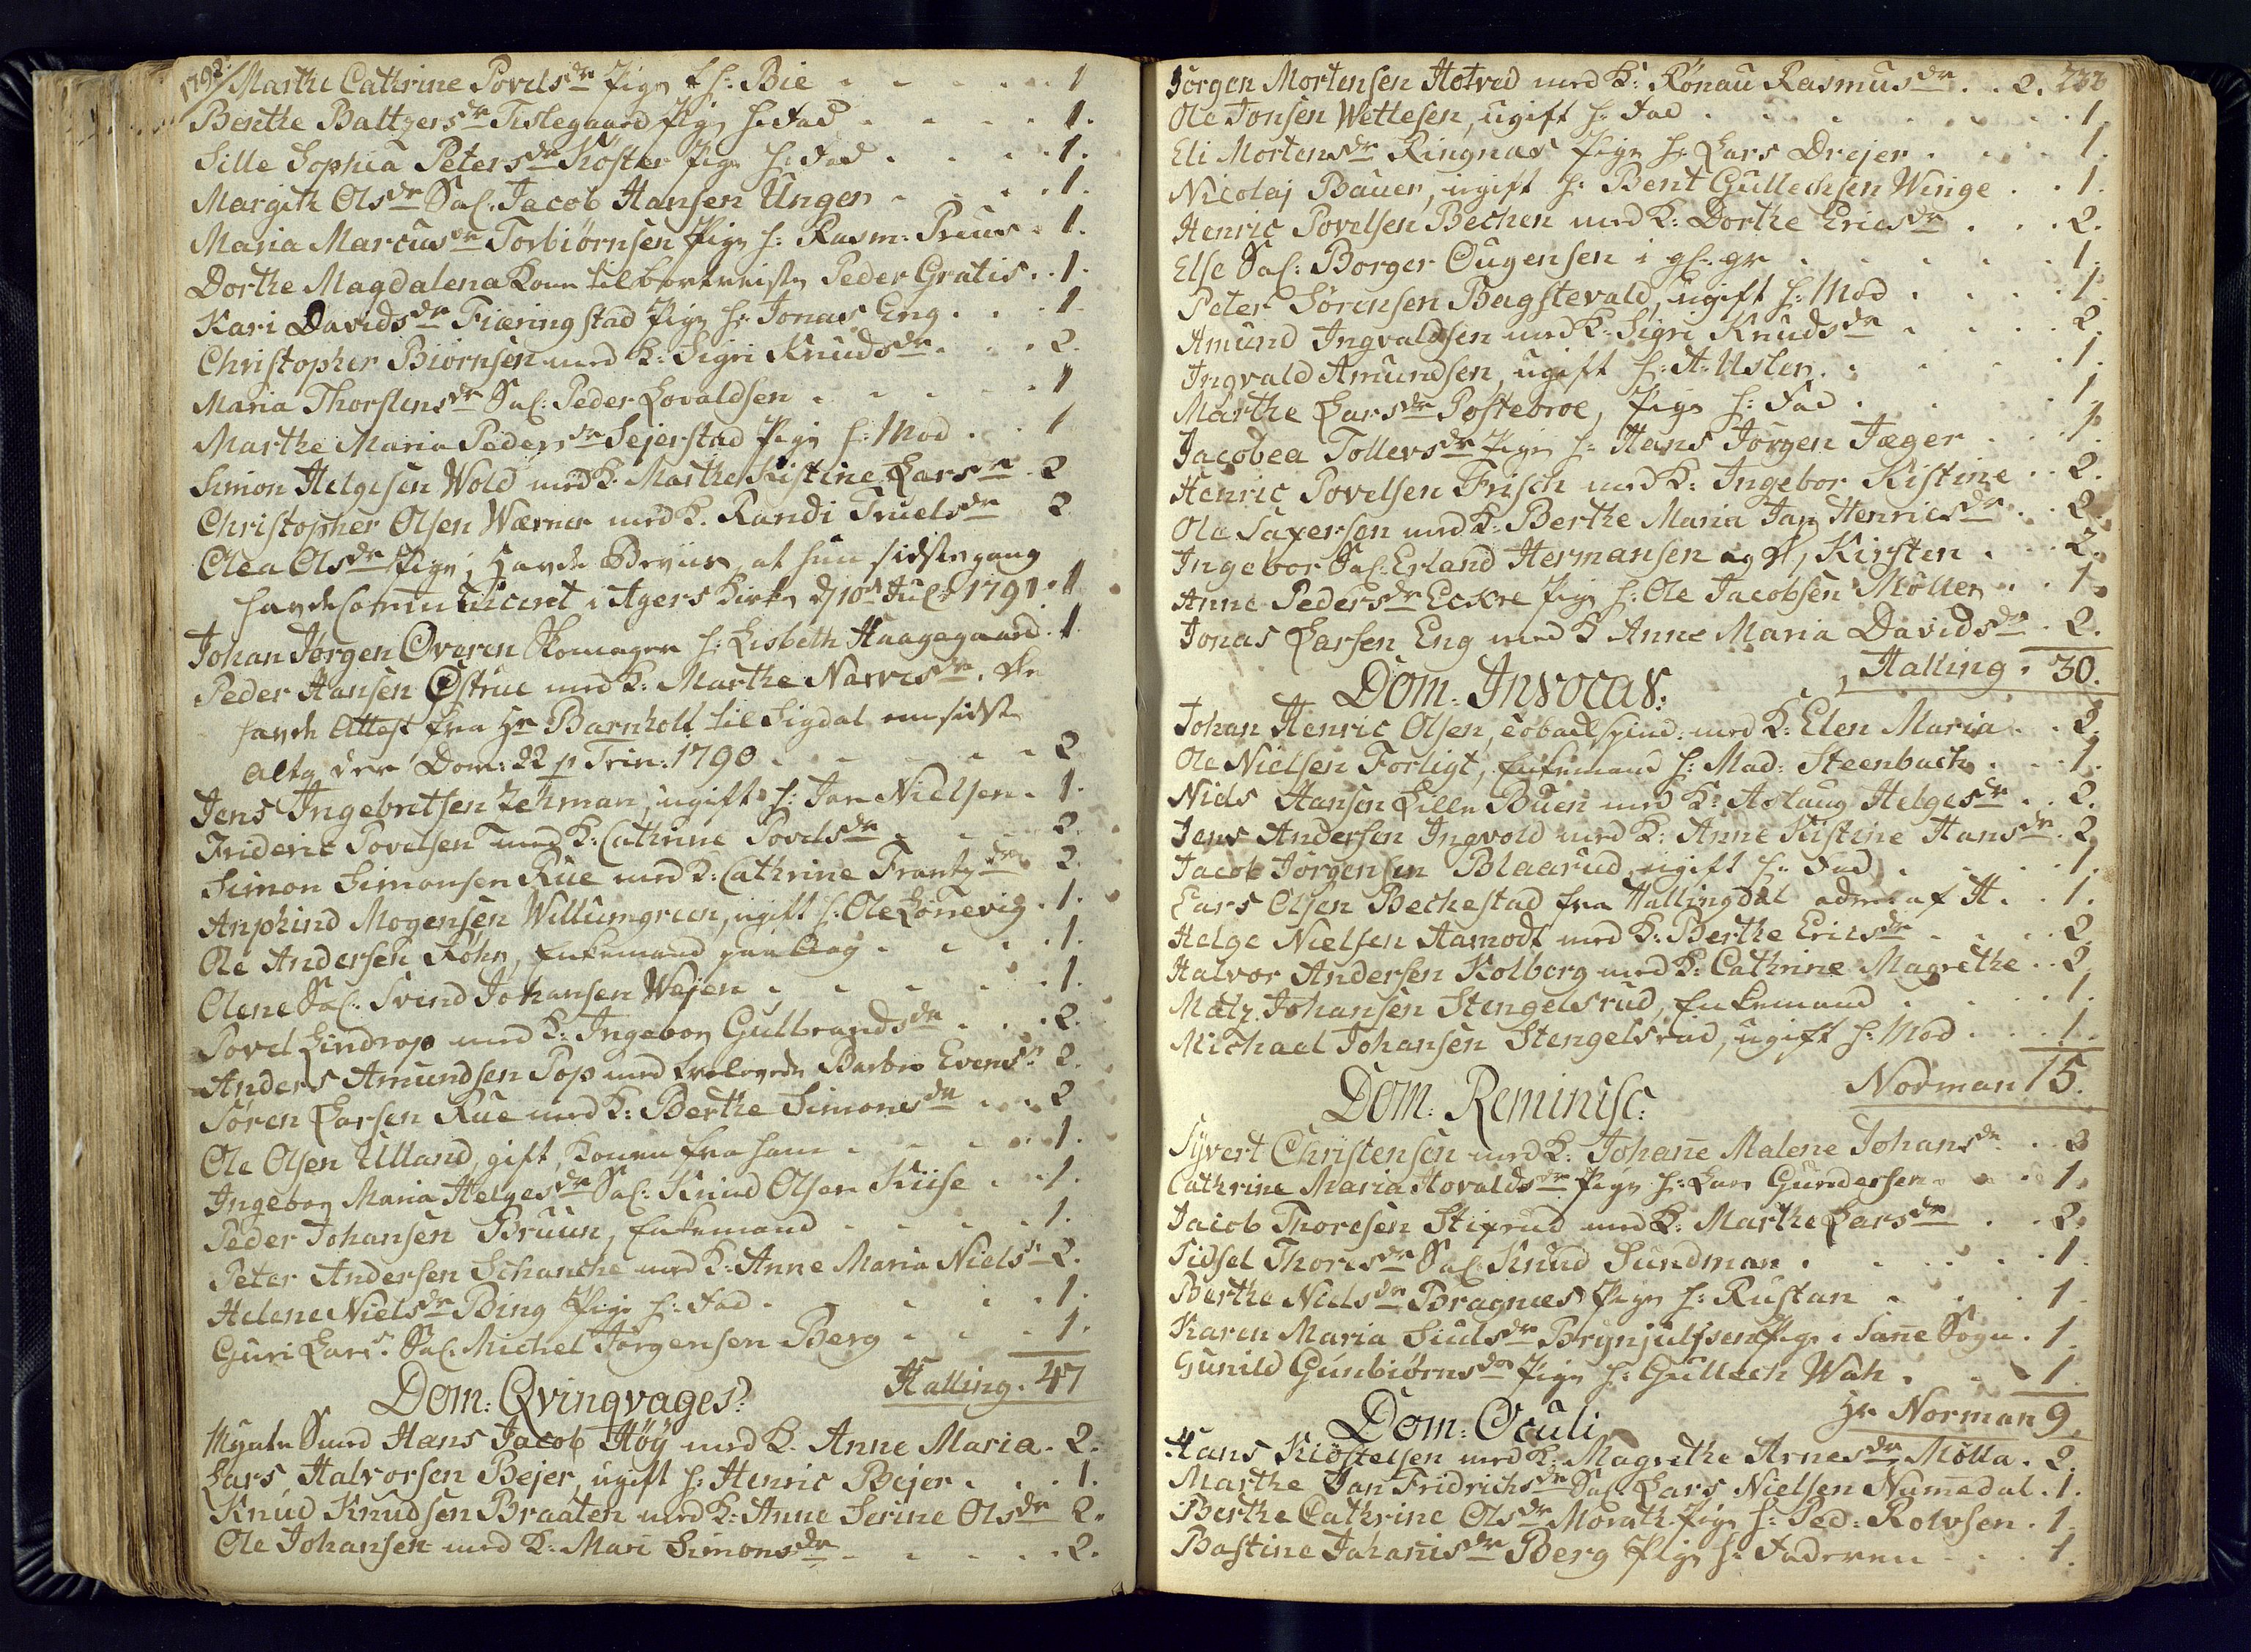 1792. Marthe Catrine Povels dr Pige h: Bie - - - - 1
Benthe Baltzers dr Tislegaard Pige h: Fad - - - - 1.
Sille Sophia Peters dr Koster Pige h: Fad - - - 1.
Margith Ols dr Sal. Jacob Hansen Unger - - - 1.
Maria Marcus dr Torbiørnsen Pige h: Rasm: Preus - 1.
Dorthe Magdalena Kone til bortreiste Peder Gratis . . 1.
Kari Davids dr Fiæringstad Pige h: Jonas Eng . . . 1
Christopher Biørnsen med K: Sigri Knuds dr . . . 2.
Maria Thorstens dr Sal: Peder Lovaldsen . . . . 1
Marthe Maria Peders dr Sejerstad Pige h: Mod . . 1
Simon Helgesen Wold med K. Marthe Kistine Lars dr 2
Christopher Olsen Wærner med K. Randi Truels dr 2
Olea Ols dr Pige, havde Beviis, at hun sidste gang
havde Communiceret i Agers Kirke d 10de Jul: 1791 . 1
Johan Jørgen Overen Skomager h: Lisbeth Haagagaard . 1.
Peder Hansen Østrue med K: Marthe Narves dr. De
havde Attest fra Hr Barnholt til Sigdal om sidste
Altg der Dom: 22 p Trin: 1790 - - - - 2
Jens Ingebretsen Zehman, ugift h: Jan Nielsen . 1.
Frideric Povelsen med K: Cathrine Povels dr - - - 2.
Simon Simonsen Rue med K: Cathrine Frantz dr 2.
Anphind Mogensen Willumgreen, ugift h: Ole Lønevig . 1.
Ole Andersen Røhn, Enkemand paa Aag . . . . 1.
Olene Sal. Svend Johansen Wejen . . . . 1.
Povel Lindrop med K: Ingebor Gulbrands dr . . . 2.
Anders Amundsen Pop med trolovede Barbro Evens dr 2.
Søren Larsen Rue med K: Berthe Simons dr . . 2
Ole Olsen Ulland, gift, Konen fra ham . . . . 1.
Ingebor Maria Helges dr Sal: Knud Olsen Kiise . . 1.
Peder Johansen Bruun, Enkemand . . . . 1.
Peter Andersen Schanche med K: Anne Maria Niels dr 2.
Helene Niels dr Bing Pige h: Fad . . . . 1.
Guri Lars dr Sal. Michel Jørgensen Berg . . . 1.
Halling . 47
Dom: Qvinqvages:
Mynte Smed Hans Jacob Høÿ med K. Anne Maria . 2.
Lars Halvorsen Bejer, ugift h: Henric Bejer . . . 1.
Knud Knudsen Braaten med K: Anne Serine Ols dr 2.
Ole Johansen med K: Mari Simons dr . . . . 2.
Jørgen Mortensen Hotved med K: Rønau Rasmus dr . . 2. 233
Ole Jonsen Wettesen, ugift h: Fad . . . . . 1.
Eli Mortens dr Ringnæs Pige h: Lars Drejer . . . 1.
Nicolaj Bauer, ugift h: Bent Gullechsen Winge . . 1.
Henric Povelsen Bechen med K: Dorthe Erics dr . . . 2.
Else Sal: Borger Ougensen i gl. gr . . . . 1.
Peter Sørensen Bagstevald, ugift h: Mod . . . . 1.
Amund Ingvaldsen med K: Sigri Knuds dr . . . . 2.
Ingvald Amundsen, ugift h: A: Usler . . . . 1.
Marthe Lars dr Postebroe, Pige h: Fad . . . . 1
Jacobea Tollevs dr Pige h: Hans Jørgen Jæger . . . 1.
Henric Povelsen Frisch med K: Ingebor Kistine . . 2.
Ole Saxersen med K: Berthe Maria Jan Henrics dr . . 2.
Ingebor Sal. Erland Hermansen og D, Kirsten . . . 2.
Anne Peders dr Eckre Pige h: Ole Jacobsen Møller . . 1.
Jonas Larsen Eng med K Anne Maria Davids dr . 2.
Halling . 30.
Dom: Invocav:
Johan Henric Olsen, Tobachspind: med K: Elen Maria . . 2.
Ole Nielsen Forligt, Enkemand h: Mad: Steenbuch . . 1.
Niels Hansen Lille Buen med K: Aslaug Helges dr . . 2.
Jens Andersen Ingvold med K: Anne Kistine Hans dr . 2
Jacob Jørgensen Blaarud, ugift h: Fad . . . 1.
Lars Olsen Bechestad fra Hallingdal adm: af H. . 1.
Helge Nielsen Aamodt med K: Berthe Erics dr . . . 2
Halvor Andersen Kolberg med K: Cathrine Magrethe . . 2
Matz Johansen Stengelsrud, Enkemand . . . . 1.
Michael Johansen Stengelsrud, ugift h: Mod . . . 1.
Norman 15.
Dom: Reminisc:
Syvert Christensen med K: Johane Malene Johans dr . . 2
Cathrine Maria Hovalds dr Pige h: Lars Gundersen . . . 1.
Jacob Thoresen Stixrud med K: Marthe Lars dr . . 2.
Sidsel Thores dr Sal. Knud Sundman . . . . 1.
Berthe Niels dr Bragnæs Pige h: Rustan . . . 1.
Karen Maria Siuls dr Brynjulfsen Pige i Sane Sogn . 1.
Gunild Gunbiørns dr Pige h: Gullech Wah . . . 1.
Hr Norman 9.
Dom: Oculi
Hans Kiøstelsen med K: Magrethe Arnes dr Mølla . 2.
Marthe Jan Fridrichs dr Sal Lars Nielsen Numedal . 1.
Berthe Cathrine Ols dr Morath Pige h: Ped: Rolvsen . 1.
Bastine Johanis dr Berg Pige h: Faderen . . . 1.